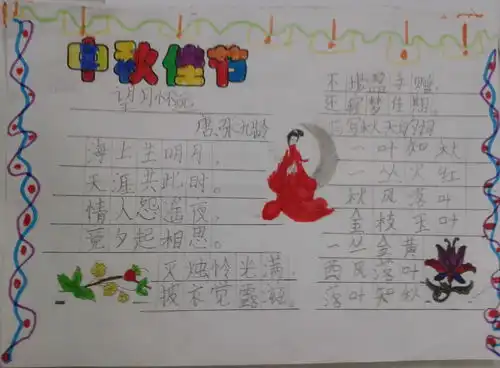 中秋佳节
望月怀远
唐·张九龄
海上生明月。
天涯共此时。
情人怨遥夜,
竟夕起相思。
灭烛怜光满,
披衣觉露滋。
不堪盈手赠,
还寝梦佳期。
写秋天的词
一叶知秋
一丛火红
秋风落叶
金枝玉叶
一丝金黄
西风落叶
落叶知秋